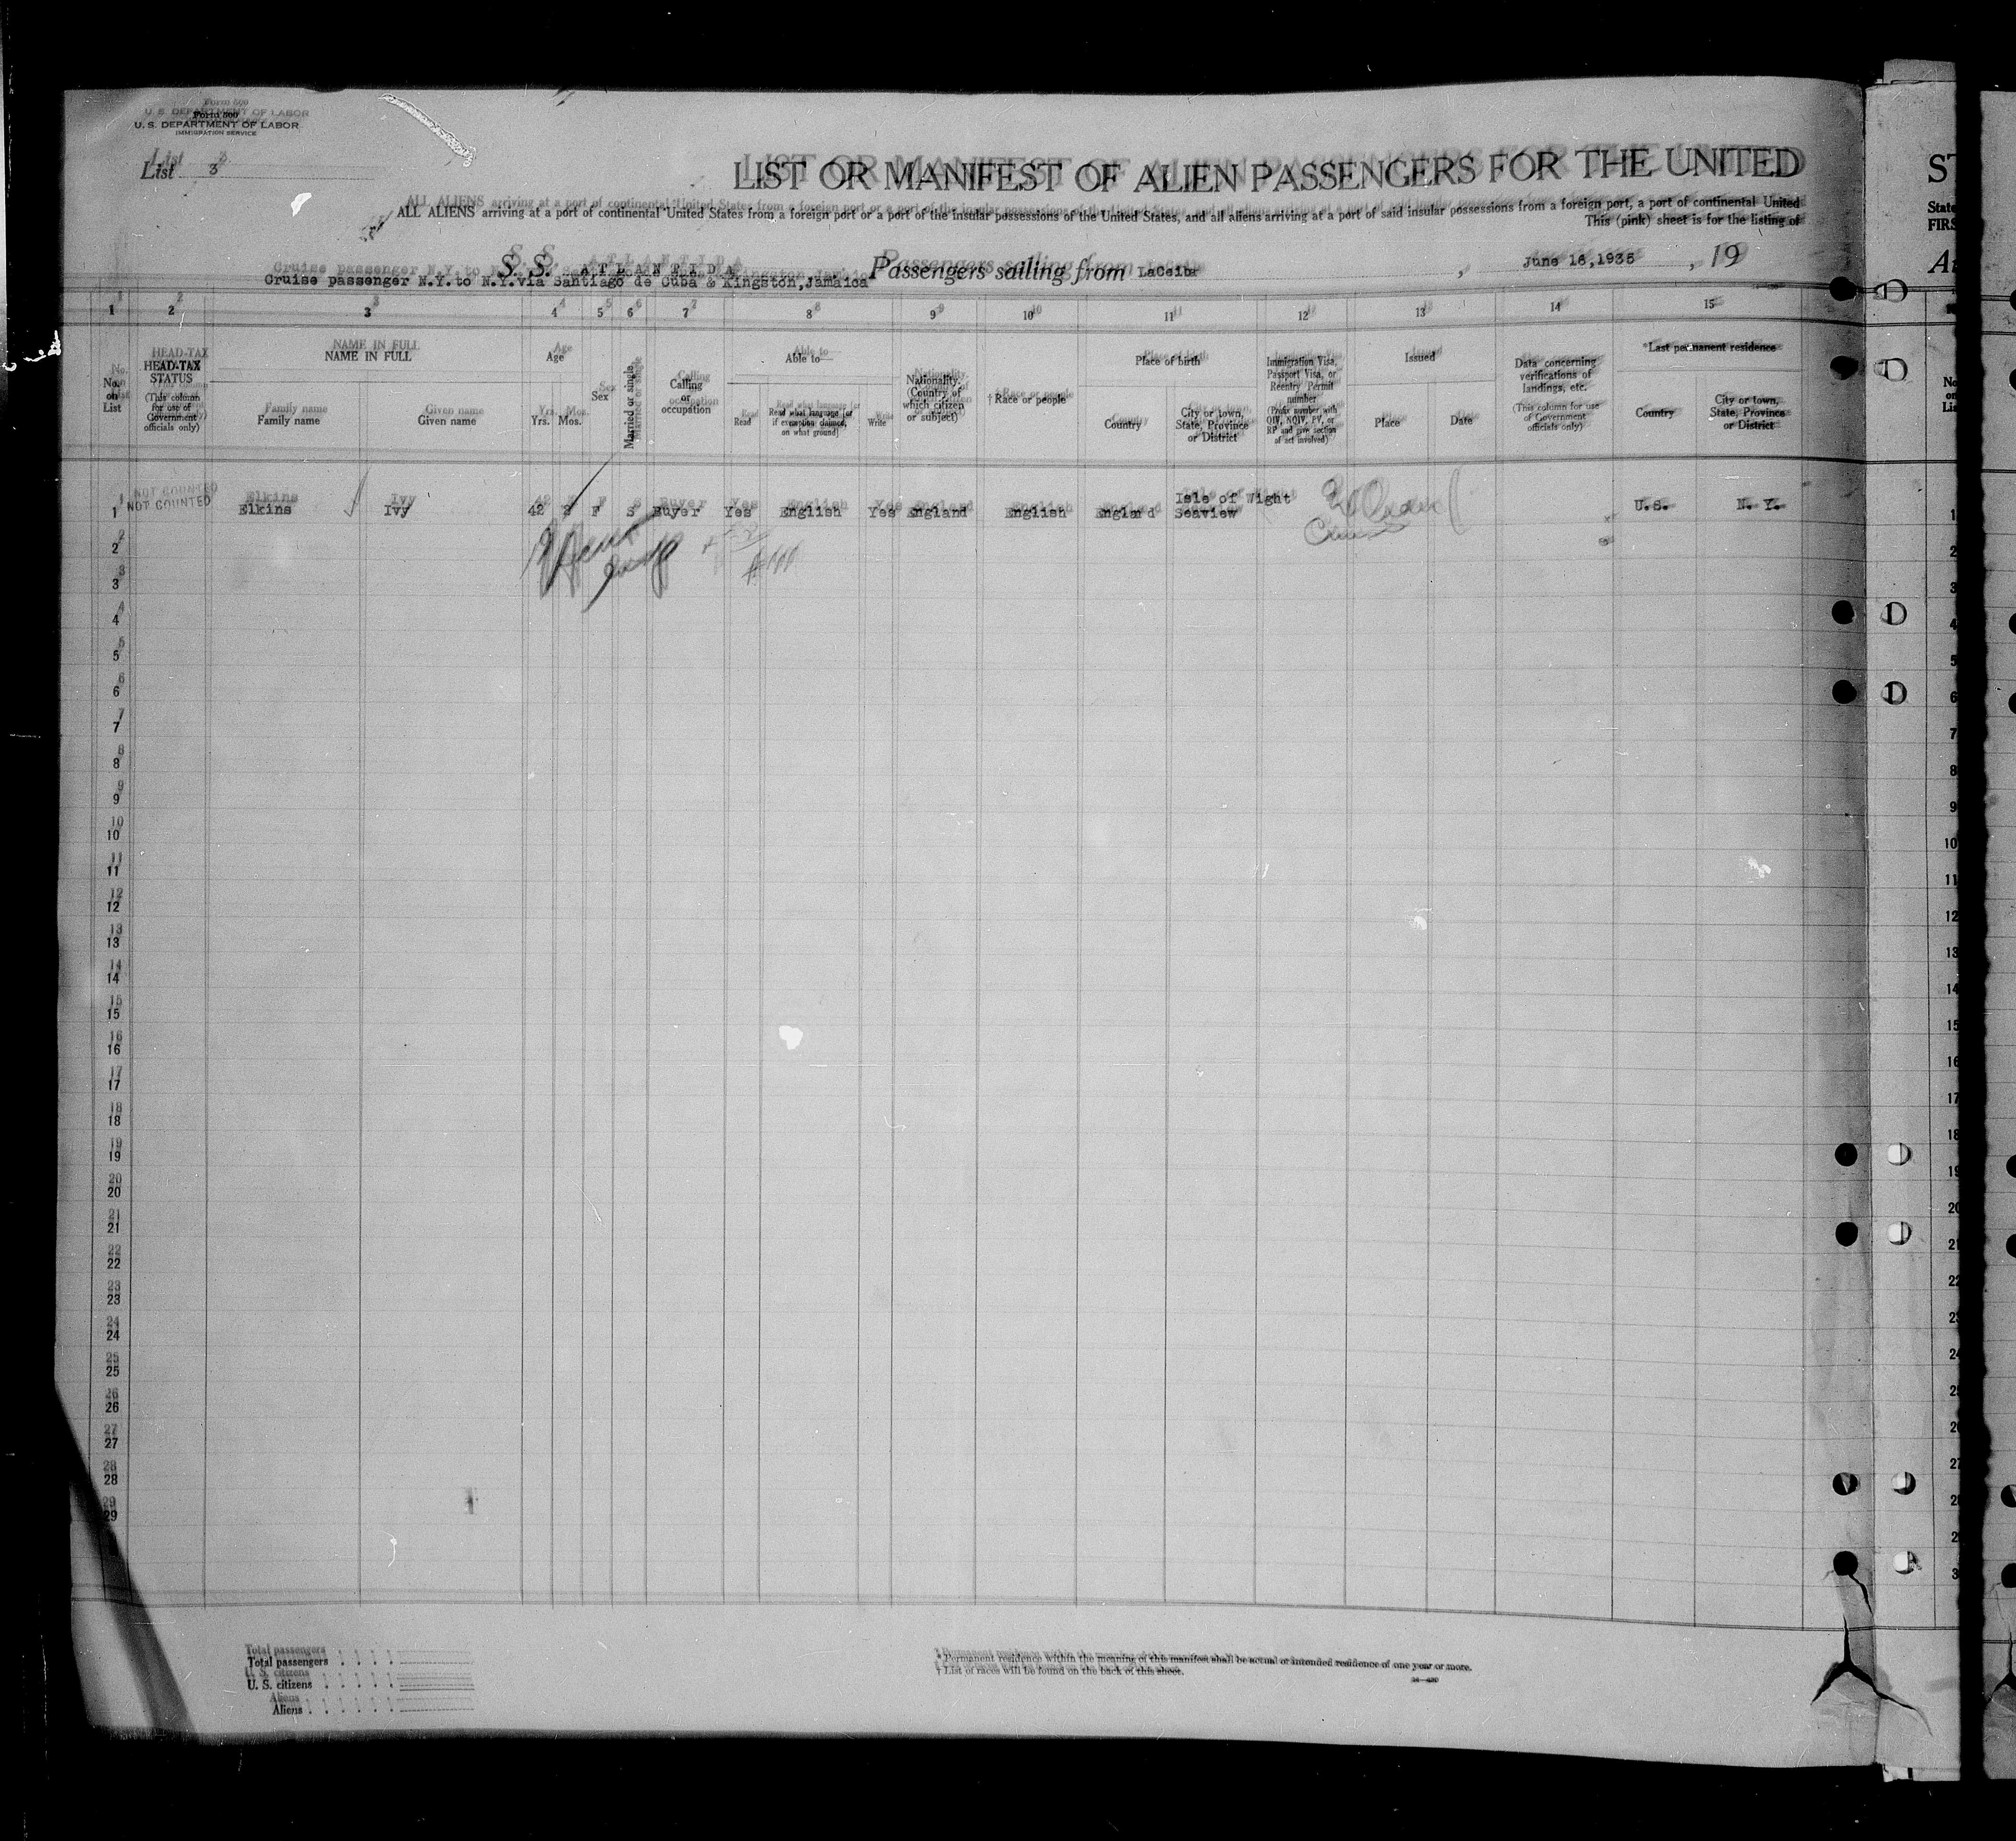 Form 500
U. S. DEPARTMENT OF LABOR
IMMIGRATION SERVICE
List 3
LIST OR MANIFEST OF ALIEN PASSENGERS FOR THE UNITED
ALL ALIENS arriving at a port of continental United States from a foreign port or a port of the insular possessions of the United States, and all aliens arriving at a port of said insular possessions from a foreign port, a port of continental United
This (pink) sheet is for the listing of
S. S. ATLANTIDA Passengers sailing from LaCeiba, June 16,1935, 19
Cruise passenger N.Y.to N.Y.via Santiago de Cuba & Kingston,Jamaica
1 2 3 4 5 6 7 8 9 10 11 12 13 14 15
No. on List
HEAD-TAX STATUS
(This column for use of Government officials only)
NAME IN FULL
Family name Given name
Age
Yrs. Mos.
Sex
Married or single
Calling or occupation
Able to—
Read Read what language (or if exemption claimed, on what ground) Write
Nationality. (Country of which citizen or subject)
†Race or people
Place of birth
Country City or town, State, Province or District
Immigration Visa, Passport Visa, or Reentry Permit number
(Prefix number with QIV, NQIV, PV, or RP and give section of act involved)
Issued
Place Date
Data concerning verifications of landings, etc.
(This column for use of Government officials only)
*Last permanent residence
Country City or town, State, Province or District
Isle of Wight
1 NOT COUNTED Elkins Ivy 42 F S Buyer Yes English Yes England English England Seaview U.S. N. Y.
2
3
4
5
6
7
8
9
10
11
12
13
14
15
16
17
18
19
20
21
22
23
24
25
26
27
28
29
Total passengers
U. S. citizens
Aliens
* Permanent residence within the meaning of this manifest shall be actual or intended residence of one year or more.
† List of races will be found on the back of this sheet.